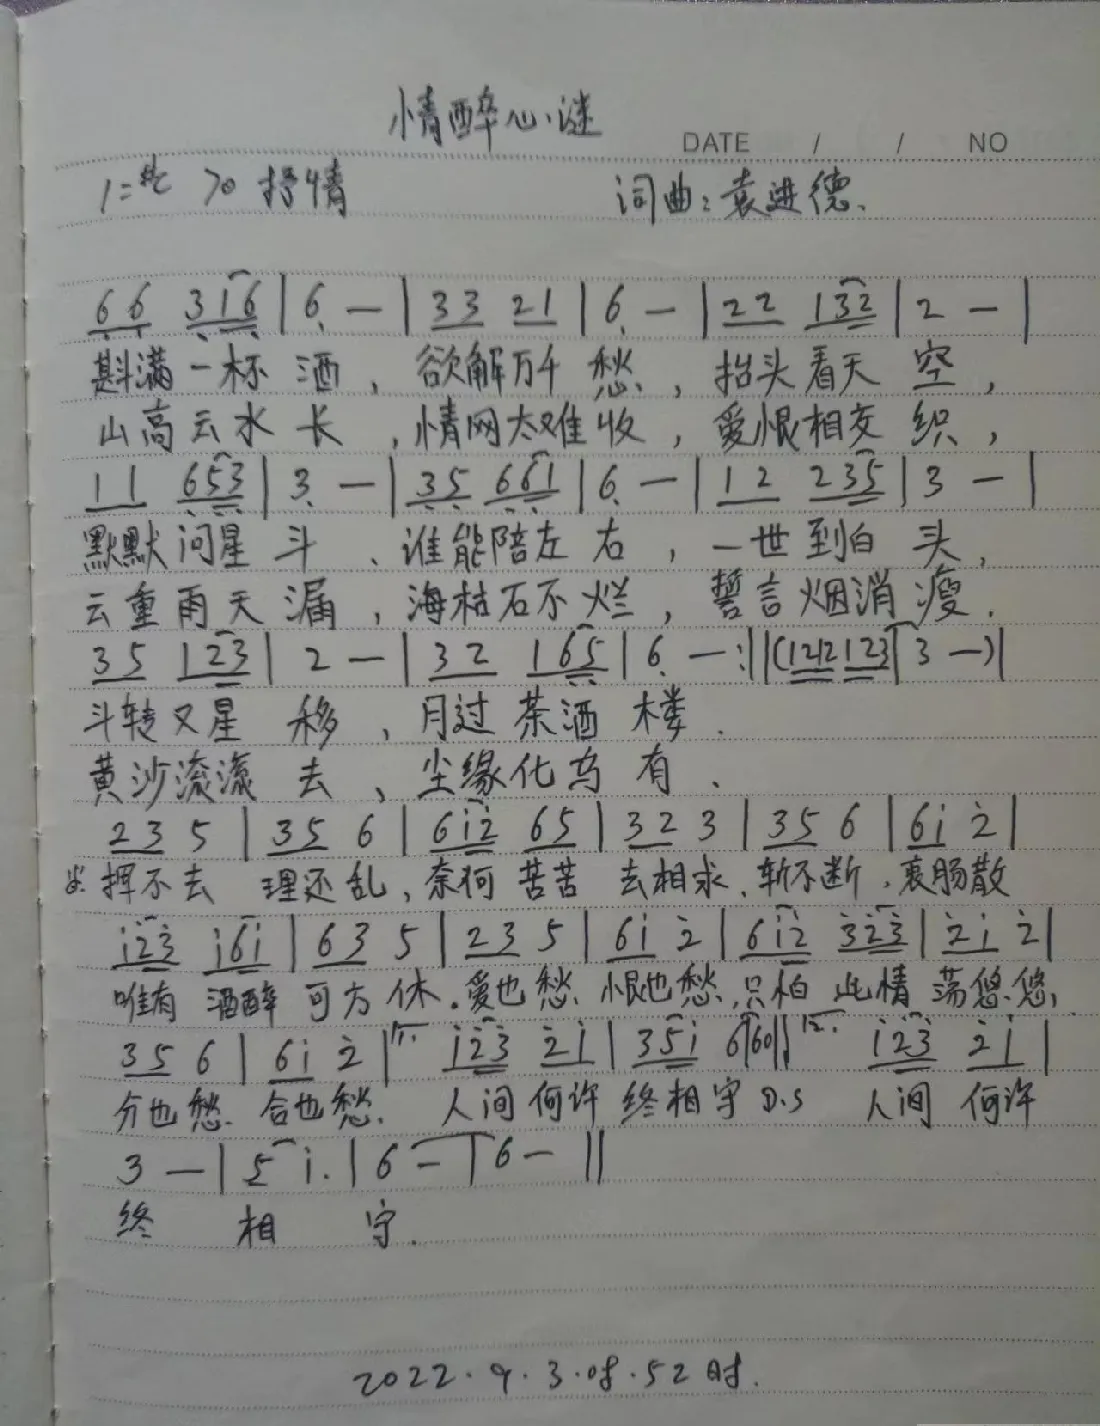 情醉心谜
DATE / / NO
1= 70 抒情 词曲:袁进德.
6 6 3 1 6 | 6 — | 3 3 2 1 | 6 — | 2 2 1 3 2 | 2 — |
斟满一杯酒,欲解万千愁,抬头看天空,
山高云水长,情网太难收,爱恨相交织,
1 1 6 5 3 | 3 — | 3 5 6 6 1 | 6 — | 1 2 2 3 5 | 3 — |
默默问星斗、谁能陪左右,一世到白头,
云重雨天漏,海枯石不烂,誓言烟消瘦.
3 5 1 2 3 | 2 — | 3 2 1 6 5 | 6 — :||(1 2 1 2 1 2 3 | 3 —)|
斗转又星移,月过茶酒楼.
黄沙滚滚去、尘缘化乌有.
2 3 5 | 3 5 6 | 6 i 2 6 5 | 3 2 3 | 3 5 6 | 6 i 2 |
挥不去 理还乱,奈何苦苦去相求.斩不断,衷肠散
i 2 3 i 6 i | 6 3 5 | 2 3 5 | 6 i 2 | 6 i 2 3 2 3 | 2 i 2 |
唯有酒醉可方休.爱也愁.恨也愁,只怕此情荡悠悠,
3 5 6 | 6 i 2 | 1. i 2 3 2 i | 3 5 i 6 | 6 0 || 2. i 2 3 2 i |
分也愁.合也愁.人间何许终相守 D.S 人间何许
3 — | 5 i. | 6 — | 6 — ||
终相守.
2022.9.3.08.52时.